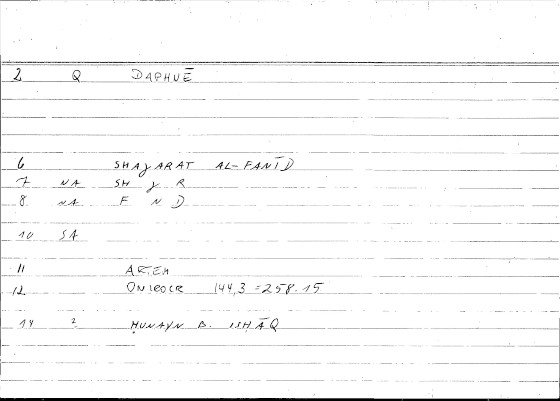 2 Q DAPHUĒ
6 SHAJARAT AL-FANĪD
7 NA SH J R
8 NA F N D
10 SA
11 ARTEM
12 ONIROCR 144,3 = 258.15
14 ? ḤUNAYN B. ISḤĀQ